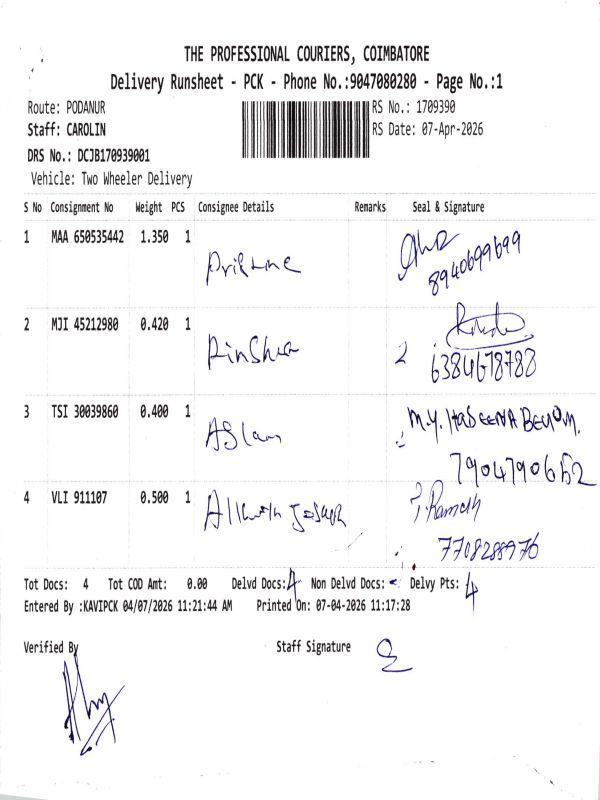 THE PROFESSIONAL COURIERS, COIMBATORE
Delivery Runsheet - PCK - Phone No.:9047080280 - Page No.:1
Route: PODANUR
RS No.: 1709390
Staff: CAROLIN
RS Date: 07-Apr-2026
DRS No.: DCJB170939001
Vehicle: Two Wheeler Delivery
S No Consignment No Weight PCS Consignee Details Remarks Seal & Signature
1 MAA 650535442 1.350 1
8940699699
2 MJI 45212980 0.420 1
6384678788
3 TSI 30039860 0.400 1 Aslam M.Y. HASEENA BEGUM.
7904790652
4 VLI 911107 0.500 1 Joseph T. Ramesh
7708288976
Tot Docs: 4 Tot COD Amt: 0.00 Delvd Docs: 4 Non Delvd Docs: - Delvy Pts: 4
Entered By :KAVIPCK 04/07/2026 11:21:44 AM Printed On: 07-04-2026 11:17:28
Verified By Staff Signature